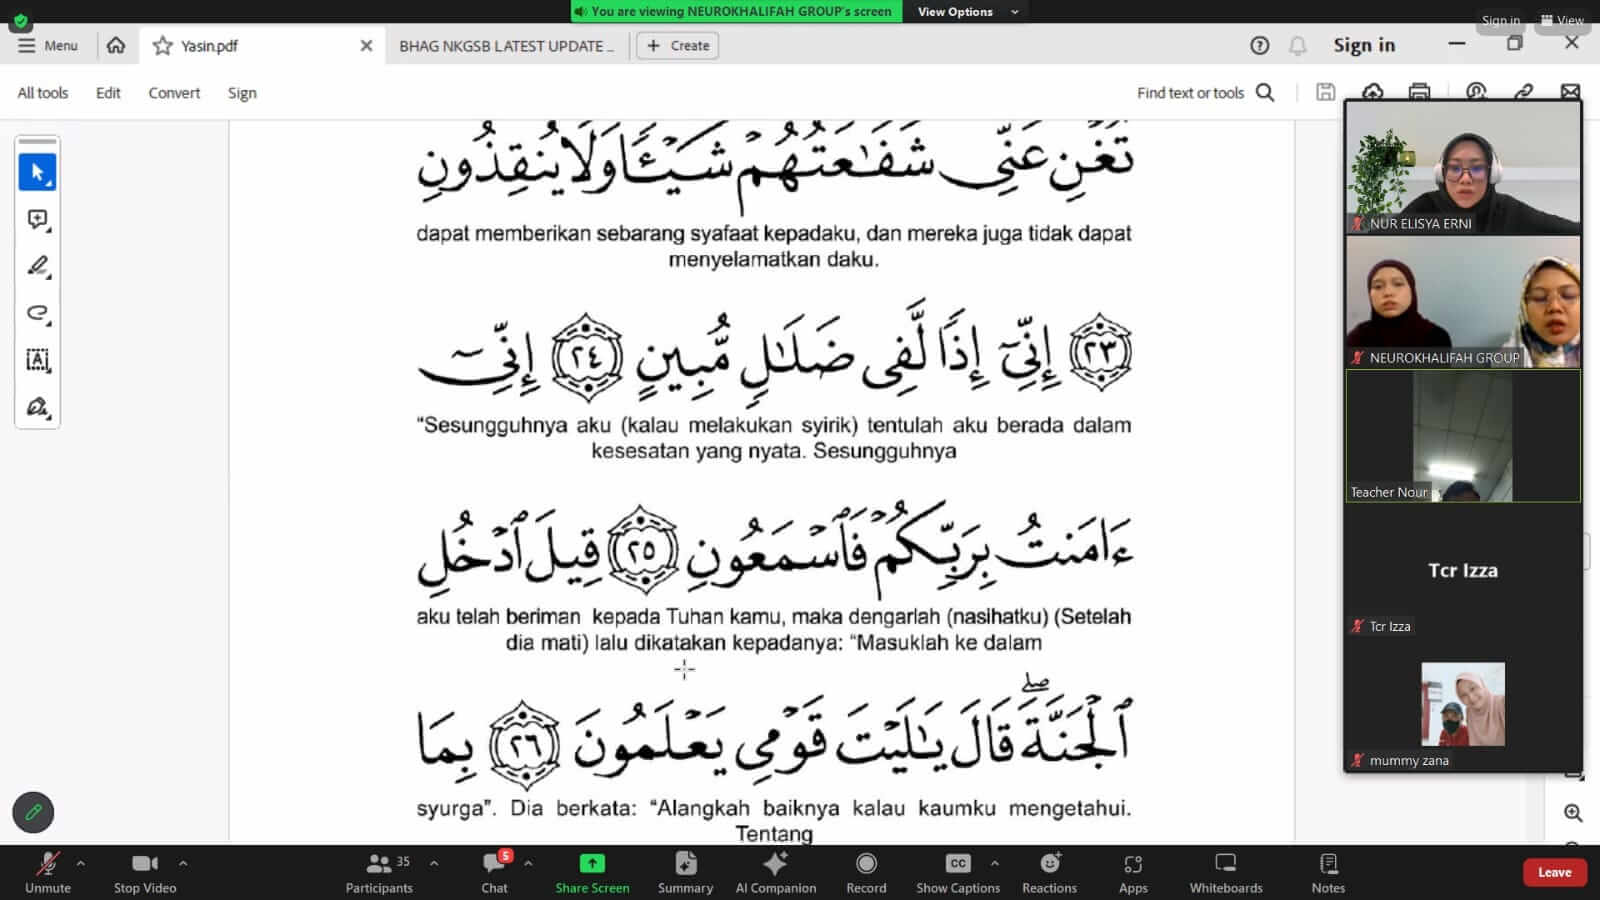 You are viewing NEUROKHALIFAH GROUP's screen
View Options
Sign in
View
Menu
Yasin.pdf
BHAG NKGSB LATEST UPDATE ...
Create
Sign in
All tools
Edit
Convert
Sign
Find text or tools
تُغْنِ عَنِّي شَفَـٰعَتُهُمْ شَيْـًٔا وَلَا يُنقِذُونِ
dapat memberikan sebarang syafaat kepadaku, dan mereka juga tidak dapat
menyelamatkan daku.
٢٣ إِنِّىٓ إِذًا لَّفِى ضَلَـٰلٍ مُّبِينٍ ٢٤ إِنِّىٓ
“Sesungguhnya aku (kalau melakukan syirik) tentulah aku berada dalam
kesesatan yang nyata. Sesungguhnya
ءَامَنتُ بِرَبِّكُمْ فَٱسْمَعُونِ ٢٥ قِيلَ ٱدْخُلِ
aku telah beriman kepada Tuhan kamu, maka dengarlah (nasihatku) (Setelah
dia mati) lalu dikatakan kepadanya: “Masuklah ke dalam
ٱلْجَنَّةَ ۖ قَالَ يَـٰلَيْتَ قَوْمِى يَعْلَمُونَ ٢٦ بِمَا
syurga”. Dia berkata: “Alangkah baiknya kalau kaumku mengetahui.
Tentang
NUR ELISYA ERNI
NEUROKHALIFAH GROUP
Teacher Nour
Tcr Izza
Tcr Izza
mummy zana
Unmute
Stop Video
35
Participants
5
Chat
Share Screen
Summary
AI Companion
Record
CC
Show Captions
Reactions
Apps
Whiteboards
Notes
Leave